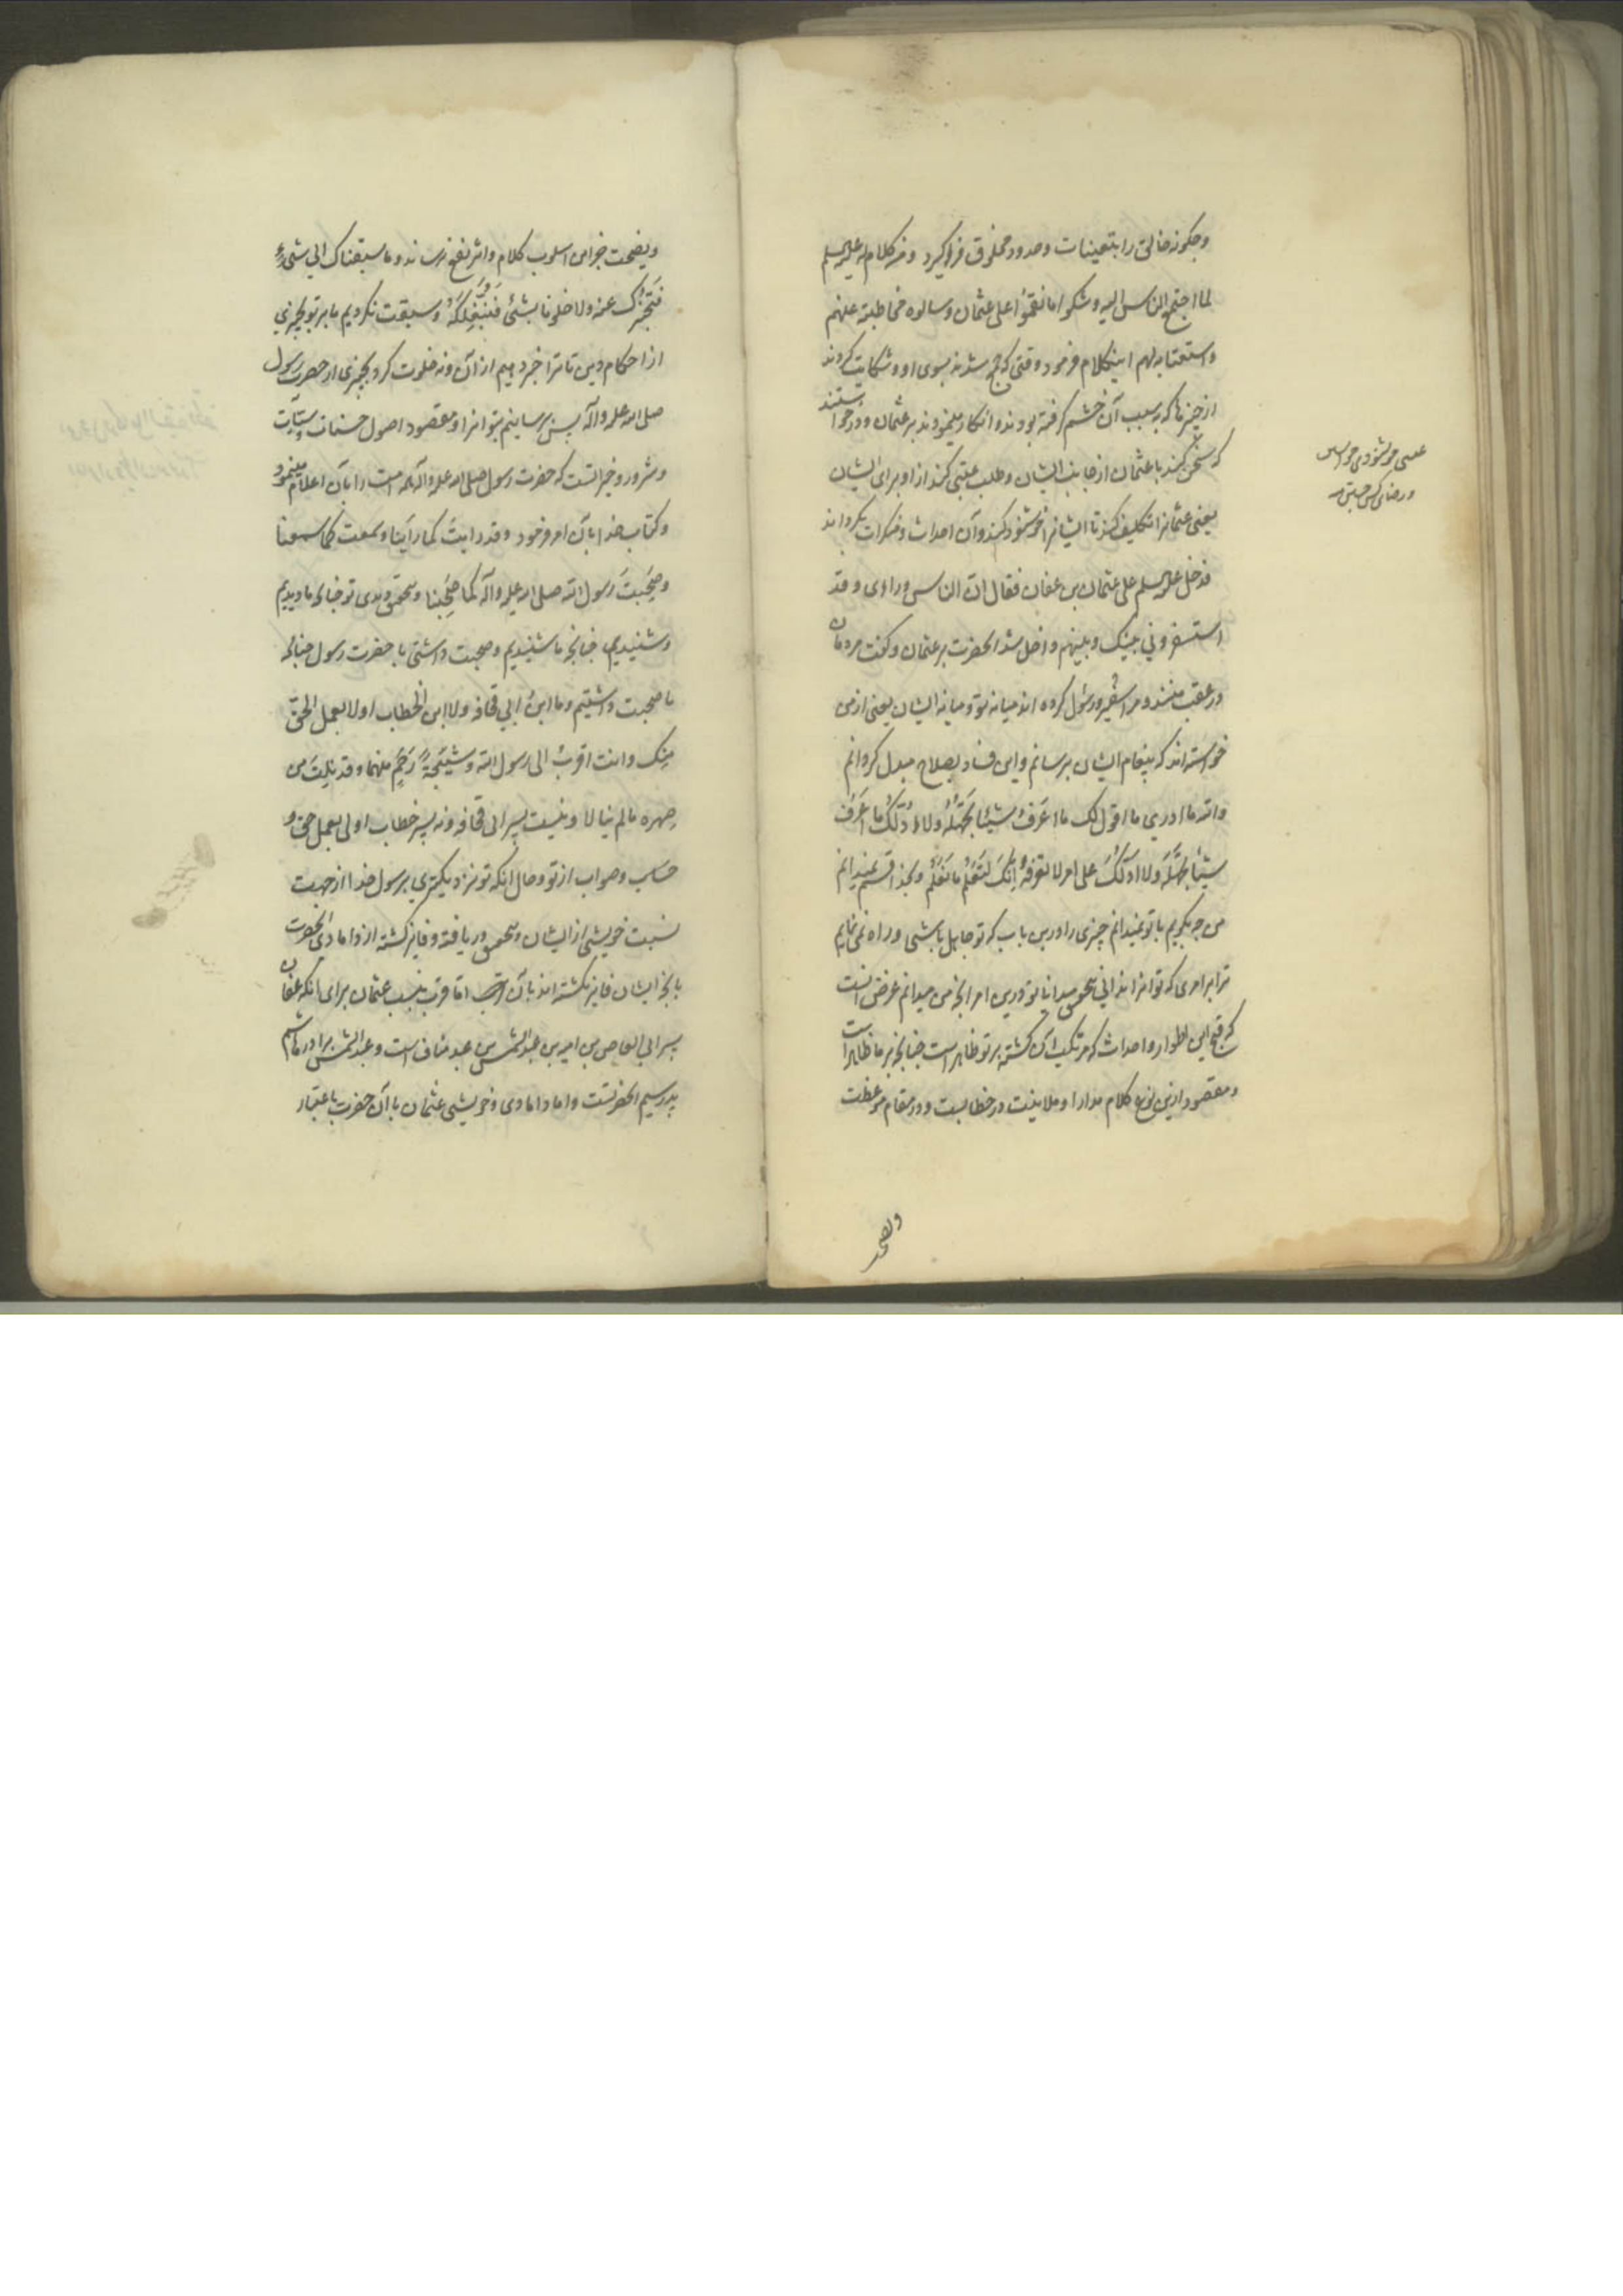 وچگونه خالق را بتعینات وحدود مخلوق فراگیرد ومن کلام له علیه السلم
لما اجتمع الناس الیه وشکوا ما نقموا علی عثمان وسالوه مخاطبته عنهم
واستعتابه لهم اینکلام فرمود وقتی که جمع شدند بسوی او وشکایت کردند
از چیزها که بسبب آن خشم گرفته بودند وانکار مینمودند بر عثمان ودرخواستند
که سخن کند با عثمان از جانب ایشان وطلب عتبی کند از او برای ایشان
یعنی عثمانرا تکلیف کند تا ایشانرا خوشنود کند وآن احداث ومنکرات بگرداند
فدخل علیه السلم علی عثمان بن عفان فقال ان الناس ورائی وقد
استسفرونی بینک وبینهم داخل شد آنحضرت بر عثمان وگفت مردمان
در عقب منند ومرا سفیر ورسول کرده اند میانه تو ومیانه ایشان یعنی از من
خواسته اند که پیغام ایشان برسانم واین فساد بصلاح مبدل گردانم
والله ما ادری ما اقول لک ما اعرف شیئا تجهله ولا ادلک ما اعرف
شیئا تجهله ولا ادلک علی امر لا تعرفه انک لتعلم ما نعلم وبخدا قسم نمیدانم
من چه بگویم با تو نمیدانم چیزی را درین باب که تو جاهل باشی وراه نمی نمایم
ترا بر امری که تو انرا ندانی بتحقیق میدانی تو درین امر انچه من میدانم غرض انست
که قبح این اطوار واحداث که مرتکب آن گشته بر تو ظاهر است چنانچه بر ما ظاهر است
ومقصود ازین نوع کلام مدارا وملاینت در خطابست ودر مقام موعظت
ونصیحت
عتبی خوشنودی خواستن
ورضای کسی جستن
ونصیحت جز این اسلوب کلام واثر نفع نرساند وما سبقناک الی شیء
فنخبرک عنه ولا خلونا بشئ فنبلغکه وسبقت نکردیم ما بر تو بچیزی
از احکام دین تا ترا خبر دهیم از آن ونه خلوت کرد بچیزی از حضرت رسول
صلی الله علیه وآله پس برسانیم بتو انرا ومقصود اصول حسنات وسیئات
وشرور وخیراتست که حضرت رسول صلی الله علیه وآله همه امت را بآن اعلام مینمود
وکتاب خدا بآن امر فرمود وقد رایت کما راینا وسمعت کما سمعنا
وصحبت رسول الله صلی الله علیه وآله کما صحبنا وبتحقیق دیدی تو چنانچه ما دیدیم
وشنیدی چنانچه ما شنیدیم وصحبت داشتی با حضرت رسول چنانچه
ما صحبت داشتیم وما ابن ابی قحافه ولا ابن الخطاب اولا بعمل الحق
منک وانت اقرب الی رسول الله وشیجة رحم منهما وقد نلت من
صهره ما لم ینالا ونیست پسر ابی قحافه ونه پسر خطاب اولی بعمل حق و
حساب وصواب از تو وحال انکه تو نزدیکتری برسول خدا از جهت
نسبت خویشی از ایشان وبتحقیق دریافته وفایز گشته از دامادی آنحضرت
بانچه ایشان فایز نگشته اند بآن اما قرب نسب عثمان برای انکه عفان
پسر ابی العاص بن امیه بن عبد الشمس بن عبد مناف است وعبد الشمس برادر هاشم
پدر سیم آنحضرتست واما دامادی وخویشی عثمان با آن حضرت باعتبار